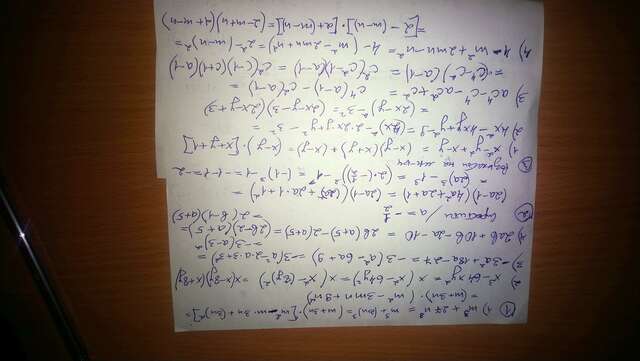 ① 1) m³ + 27n³ = m³ + (3n)³ = (m+3n)·[m² - m·3n + (3n)²] =
= (m+3n)·(m² - 3mn + 9n²)
2) x³ - 64xy² = x(x² - 64y²) = x(x² - (8y)²) = x(x-8y)(x+8y)
3) -3a² + 18a - 27 = -3(a² - 6a + 9) = -3(a² - 2·a·3 + 3²) =
= -3(a-3)²
4) 2ab + 10b - 2a - 10 = 2b(a+5) - 2(a+5) = (2b-2)(a+5) =
= 2(b-1)(a+5)
② Спростити a = -1/2
(2a-1)(4a²+2a+1) = (2a-1)((2a)²+2a·1+1²) =
= (2a)³ - 1³ = (2·(-1/2))³ - 1 = (-1)³ - 1 = -1 - 1 = -2
③ на
1) x²-y²+x-y = (x-y)(x+y)+(x-y) = (x-y)·[x+y+1]
2) 4x²-4xy+y²-9 = (2x)²-2·2x·y+y²-3² =
= (2x-y)²-3² = (2x-y-3)(2x-y+3)
3) ac⁴ - c⁴ - ac² + c² = c⁴(a-1) - c²(a-1)
= (c⁴-c²)(a-1) = c²(c²-1)(a-1) = c²(c-1)(c+1)(a-1)
4) 4 - m² + 2mn - n² = 4 - (m² - 2mn + n²) = 2² - (m-n)² =
= [2 - (m-n)]·[2 + (m-n)] = (2-m+n)(2+m-n)